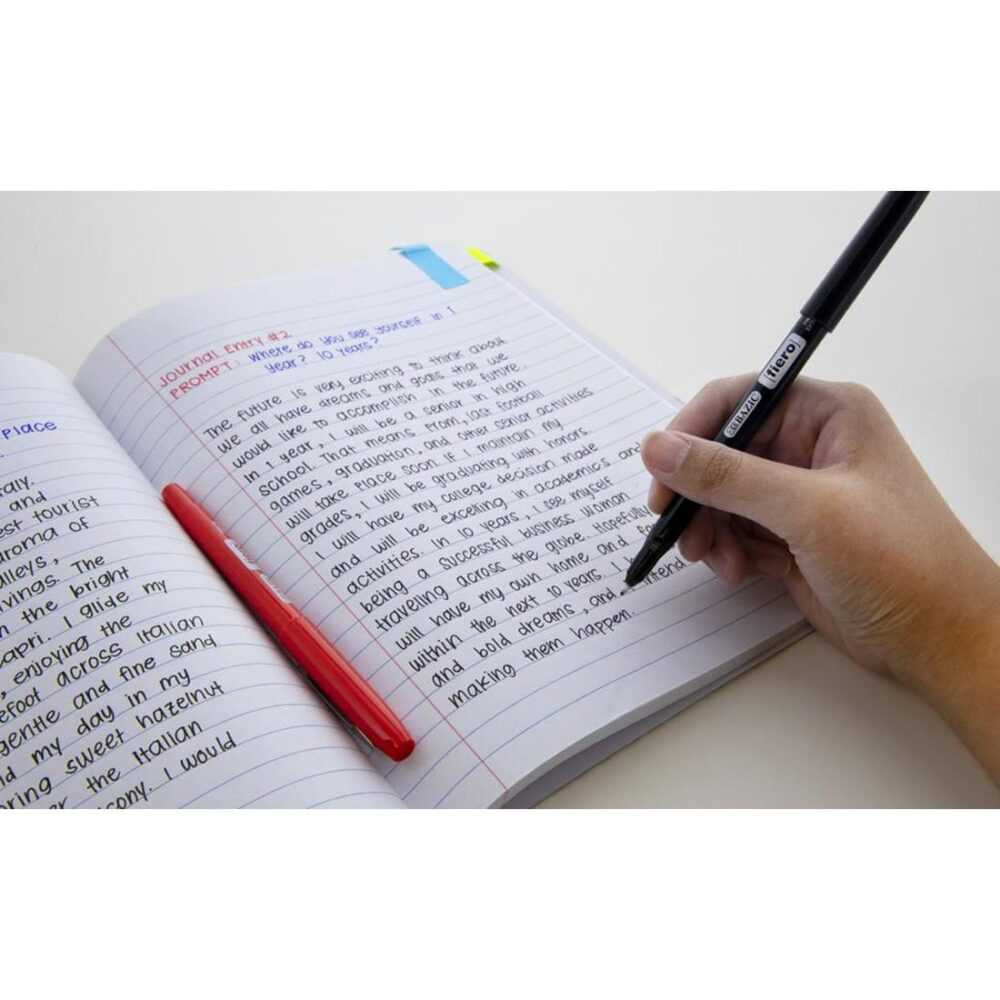 Place
rally.
and
est tourist
aroma of
alleys,
vings. The
n the bright
Capri. I glide my
, enjoying the
efoot across Italian
gentle and fine sand
nd my day in my
oring sweet hazelnut
er the Italian
cony. I would
Journal Entry #2
PROMPT: Where do you see yourself in 1
year? 10 years?
The future is very exciting to think about
We all have dreams and goals that we
would like to accomplish in the future.
In 1 year, I will be a senior in high
school. That means prom, last football
games, graduation, and other senior activities
will take place soon. If I maintain my
grades, I will be graduating with honors.
I will have my college decision made
and will be excelling in academics and
activities. In 10 years, I see myself
being a successful business woman,
traveling across the globe. Hopefully
will have my own home and
within the next 10 years. I
and bold dreams, and intend
making them happen.
BAZIC [fiero]